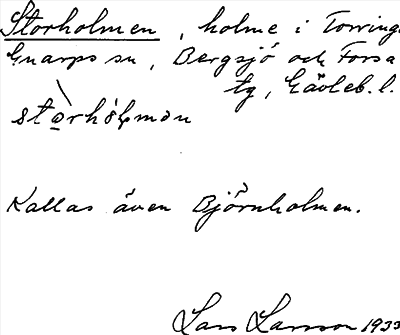 Storholmen, holme i Torring
Gnarps sn, Bergsjö och Forsa
tg, Gävleb. l.
stòrhólmən
Kallas även Björnholmen.
Lars Larsson 1933